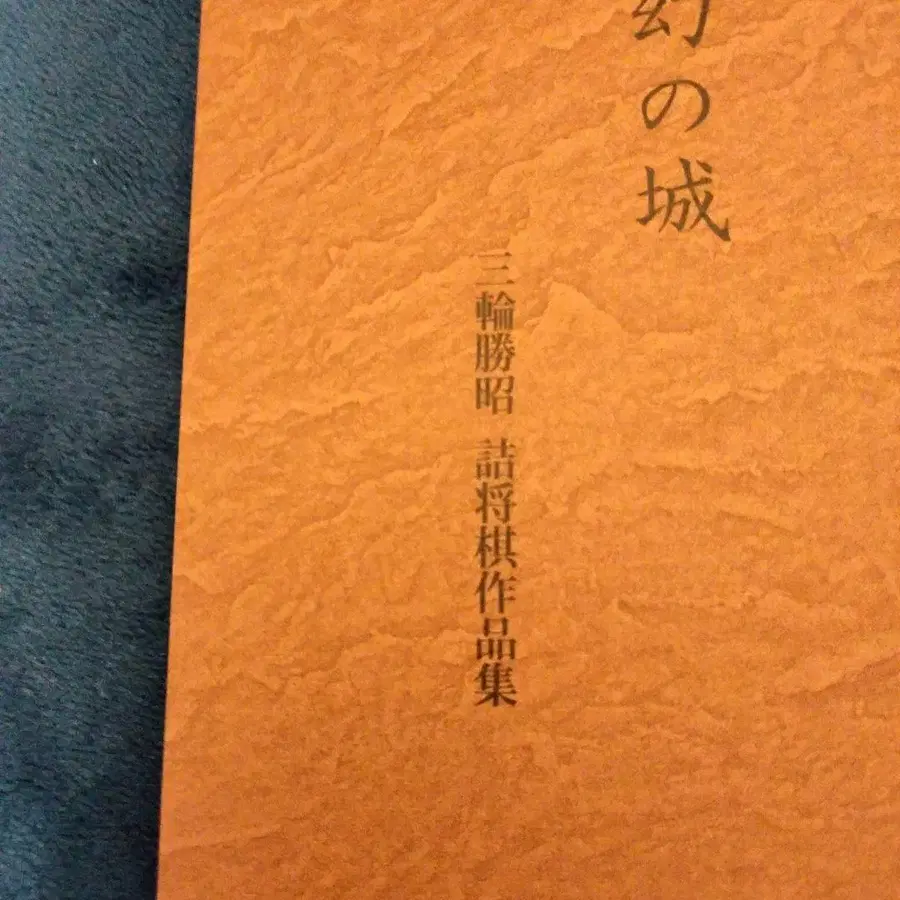 幻の城
三輪勝昭 詰将棋作品集